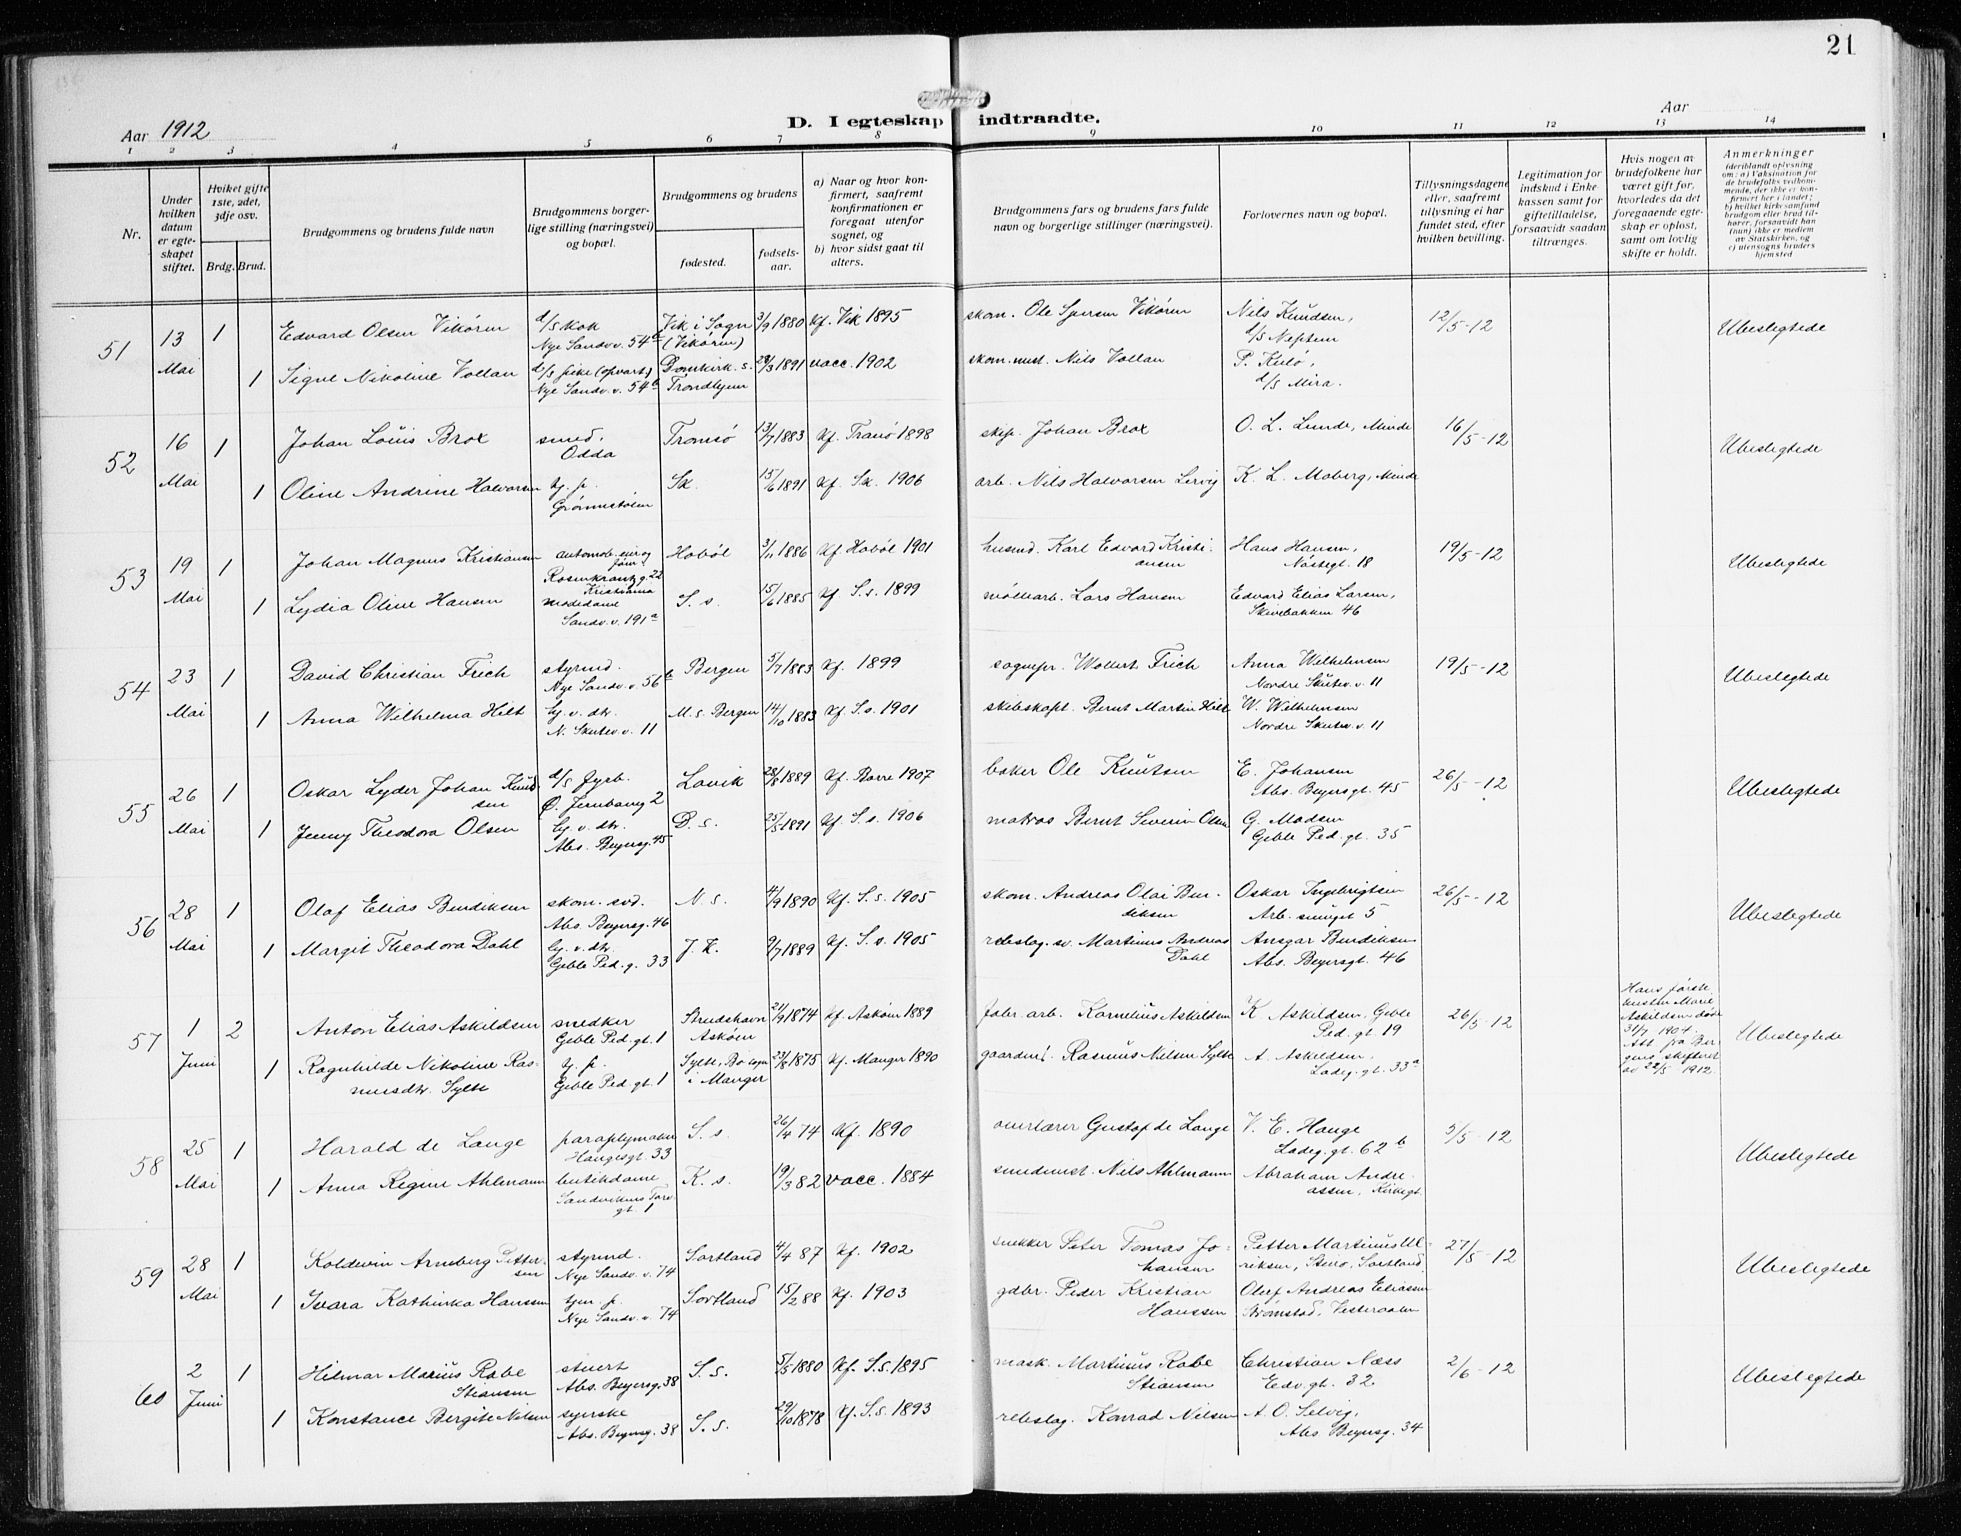 21
Aar 1912
D. I egteskap indtraadte.
Aar
1 2 3 4 5 6 7 8 9 10 11 12 13 14
Nr.
Under hvilken datum er egteskapet stiftet.
Hviket gifte 1ste, 2det, 3dje osv.
Brdg. Brud.
Brudgommens og brudens fulde navn
Brudgommens borgerlige stilling (næringsvei) og bopæl.
Brudgommens og brudens
fødested.
fødselsaar.
a) Naar og hvor konfirmert, saafremt konfirmationen er foregaat utenfor sognet, og
b) hvor sidst gaat til alters.
Brudgommens fars og brudens fars fulde navn og borgerlige stillinger (næringsvei).
Forlovernes navn og bopæl.
Tillysningsdagene eller, saafremt tillysning ei har fundet sted, efter hvilken bevilling.
Legitimation for indskud i Enkekassen samt for giftetilladelse, forsaavidt saadan tiltrænges.
Hvis nogen av brudefolkene har været gift før, hvorledes da det foregaaende egteskap er opløst, samt om lovlig skifte er holdt.
Anmerkninger (deriblandt oplysning om: a) Vaksination for de brudefolks vedkommende, der ikke er konfirmert her i landet; b) hvilket kirkesamfund brudgom eller brud tilhører, forsaavidt han (hun) ikke er medlem av Statskirken, og c) utensogns bruders hjemsted
51 13 Mai 1 Edvard Olsen Vikøren d/s kok Nye Sandv. v. 54b Vik i Sogn (Vikøren) 3/9 1880 Kf. Vik 1895 skom. Ole Vikøren Nils Knudsen, d/s Neptun 12/5-12 Ubeslegtede
1 Signe Nikoline Vollan d/s pike (opvart) Nye Sandv. v. 54b Domkirk. s. Trondhjem 29/3 1891 vacc. 1902 skom. mst. Nils Vollan P. Kulø, d/s Mira.
52 16 Mai 1 Johan Louis Brox smed, Odda Tromsø 13/7 1883 Kf. Tranø 1898 skip. Johan Brox O. L. Lunde, Minde 16/5-12 Ubeslegtede
1 Oline Andrine Halvorsen tj. p. Grønnestølen Sk. 15/6 1891 Kf. Sk. 1906 arb. Nils Halvorsen Lervig K. L. Moberg, Minde
53 19 Mai 1 Johan Magnus Kristiansen Rosenkrantz g. 22 Kristiania Hobøl 3/11 1886 Kf Hobøl 1901 husmd. Karl Edvard Kristiansen Hans Hansen, Nøstegt. 18 19/5-12 Ubeslegtede
1 Lydia Oline Hansen modedame Sandv. v. 191a S. s. 15/6 1885 Kf S. s. 1899 møllearb. Lars Hansen Edvard Elias Larsen, Skivebakken 46
54 23 Mai 1 David Christian Frich styrmd. Nye Sandv. v. 56b Bergen 5/7 1883 Kf. 1899 sognepr. Wollert Frich Anna Wilhelmsen Nordre Skutev. v. 11 19/5-12 Ubeslegtede
1 Anna Wilhelma Hilt hj. v. dtr. N. Skutev. v. 11 M. s. Bergen 14/10 1883 Kf. S. s. 1901 skibskapt. Bernt Martin Hilt W. Wilhelmsen Nordre Skutev. v. 11
55 26 Mai 1 Oskar Lyder Johan Knudsen d/s fyrb. Ø. Jernbanvg 2 Lavik 28/8 1889 Kf. Borre 1907 baker Ole Knutsen E. Johansen Abs. Beyersgt. 45 26/5-12 Ubeslegtede
1 Jenny Theodora Olsen hj. v. dtr. Abs. Beyersg. 45 D. s. 25/5 1891 Kf. S. s. 1906 matros Bernt Severin Olsen G. Madsen Geble Ped. gt. 35
56 28 Mai 1 Olaf Elias Bendiksen skom. svd. Abs. Beyersg. 46 N. s. 4/9 1890 Kf. S. s. 1905 skom. Andreas Olai Bendiksen Oskar Ingebrigtsen Arb. smuget 5 26/5-12 Ubeslegtede
1 Margit Theodora Dahl hj. v. dtr. Geble Ped. g. 33 J. K. 9/7 1889 Kf. S. s. 1905 rebslag. sv. Martinus Andreas Dahl Ansgar Bendiksen Abs. Beyersgt. 46
57 1 Juni 2 Anton Elias Askildsen snedker Geble Ped. gt. 1 Strudshavn Askøen 21/9 1874 Kf. Askøen 1889 fabr. arb. Kornelius Askildsen K. Askildsen, Geble Ped. gt. 19 26/5-12 Hans første hustru Marie Askildsen døde 31/7 1904. Att. fra Bergens skifteret av 22/5 1912. Ubeslegtede
1 Ragnhilde Nikoline Rasmusdtr. Sylte tj. p. Geble Ped. gt. 1 Sylte, Bø sogn i Manger 23/8 1875 Kf. Manger 1890 gaardm. Rasmus Nilsen Sylte A. Askildsen, Ladeg. gt. 33a
58 25 Mai 1 Harald de Lange paraplymaker Haugesgt. 33 S. s. 26/4 74 Kf. 1890 overlærer Gustof de Lange V. E. Hauge Ladeg. gt. 62b 5/5-12 Ubeslegtede
1 Anna Regine Ahlmann butikdame Sandvikens Torvgt. 1 K. s. 19/3 82 vacc. 1884 smedmst. Nils Ahlmann Abraham Andreassen, Kirkegt.
59 28 Mai 1 Koldevin Arnberg Pettersen styrmd. Nye Sandv. v. 74 Sortland 4/4 87 Kf. 1902 snekker Peter Tomas Johansen Petter Martinus Ulriksen, Steiro, Sortland 27/5-12 Ubeslegtede
1 Isara Kathinka Hanssen tjen. p. Nye Sandv. v. 74 Sortland 15/2 88 Kf. 1903 gdbr. Peder Kristian Hanssen Oluf Andreas Eliassen Strømstad, Vesteraalen
60 2 Juni 1 Hilmar Marius Rabe Steansen stuert Abs. Beyersg. 38 S. s. 5/5 1880 Kf. S. s. 1895 mask. Martinus Rabe Steansen Christian Næss Edv. gt. 32 2/6-12 Ubeslegtede
1 Konstance Bergite Nilsen syerske Abs. Beyersg. 38 S. s. 29/10 1878 Kf. S. s. 1893 rebslag. Konrad Nilsen A. O. Selvig, Abs Beyersg. 34